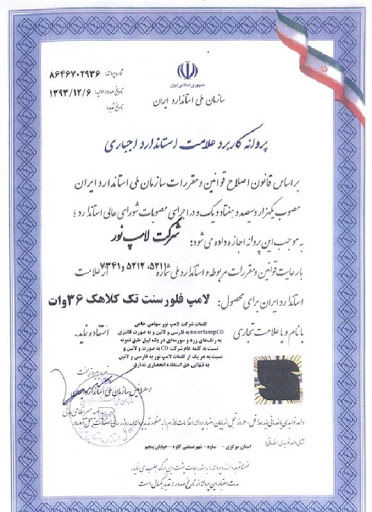 جمهوری اسلامی ایران
سازمان ملی استاندارد ایران
شماره پروانه: ۸۶۴۶۷۰۲۹۳۶
تاریخ صدور اولیه: ۱۳۹۳/۱۲/۶
تاریخ تمدید:
پروانه کاربرد علامت استاندارد اجباری
بر اساس قانون اصلاح قوانین و مقررات سازمان ملی استاندارد ایران
مصوب یکهزار و سیصد و هفتاد و یک و در اجرای مصوبات شورای عالی استاندارد ؛
به موجب این پروانه اجازه داده می‌شود: شرکت لامپ نور
با رعایت قوانین و مقررات مربوطه و استاندارد ملی شماره ۵۲۱۱، ۵۲۱۲ و ۷۳۴۱ از علامت
استاندارد ایران برای محصول: لامپ فلورسنت تک کلاهک ۳۶ وات
با نام و با علامت تجارتی
کلمات شرکت لامپ نور سهامی خاص
noorlampCO به فارسی و لاتین و به صورت فانتزی
به رنگ‌های زرد و سورمه‌ای در یک لیبل طبق نمونه
نسبت به کلمه عام شرکت CO به صورت و لاتین و
نسبت به هر یک از کلمات لامپ نور به فارسی و لاتین
به تنهایی حق استفاده انحصاری ندارد.
استفاده نماید.
استان مرکزی - ساوه - شهرصنعتی کاوه - خیابان پنجم